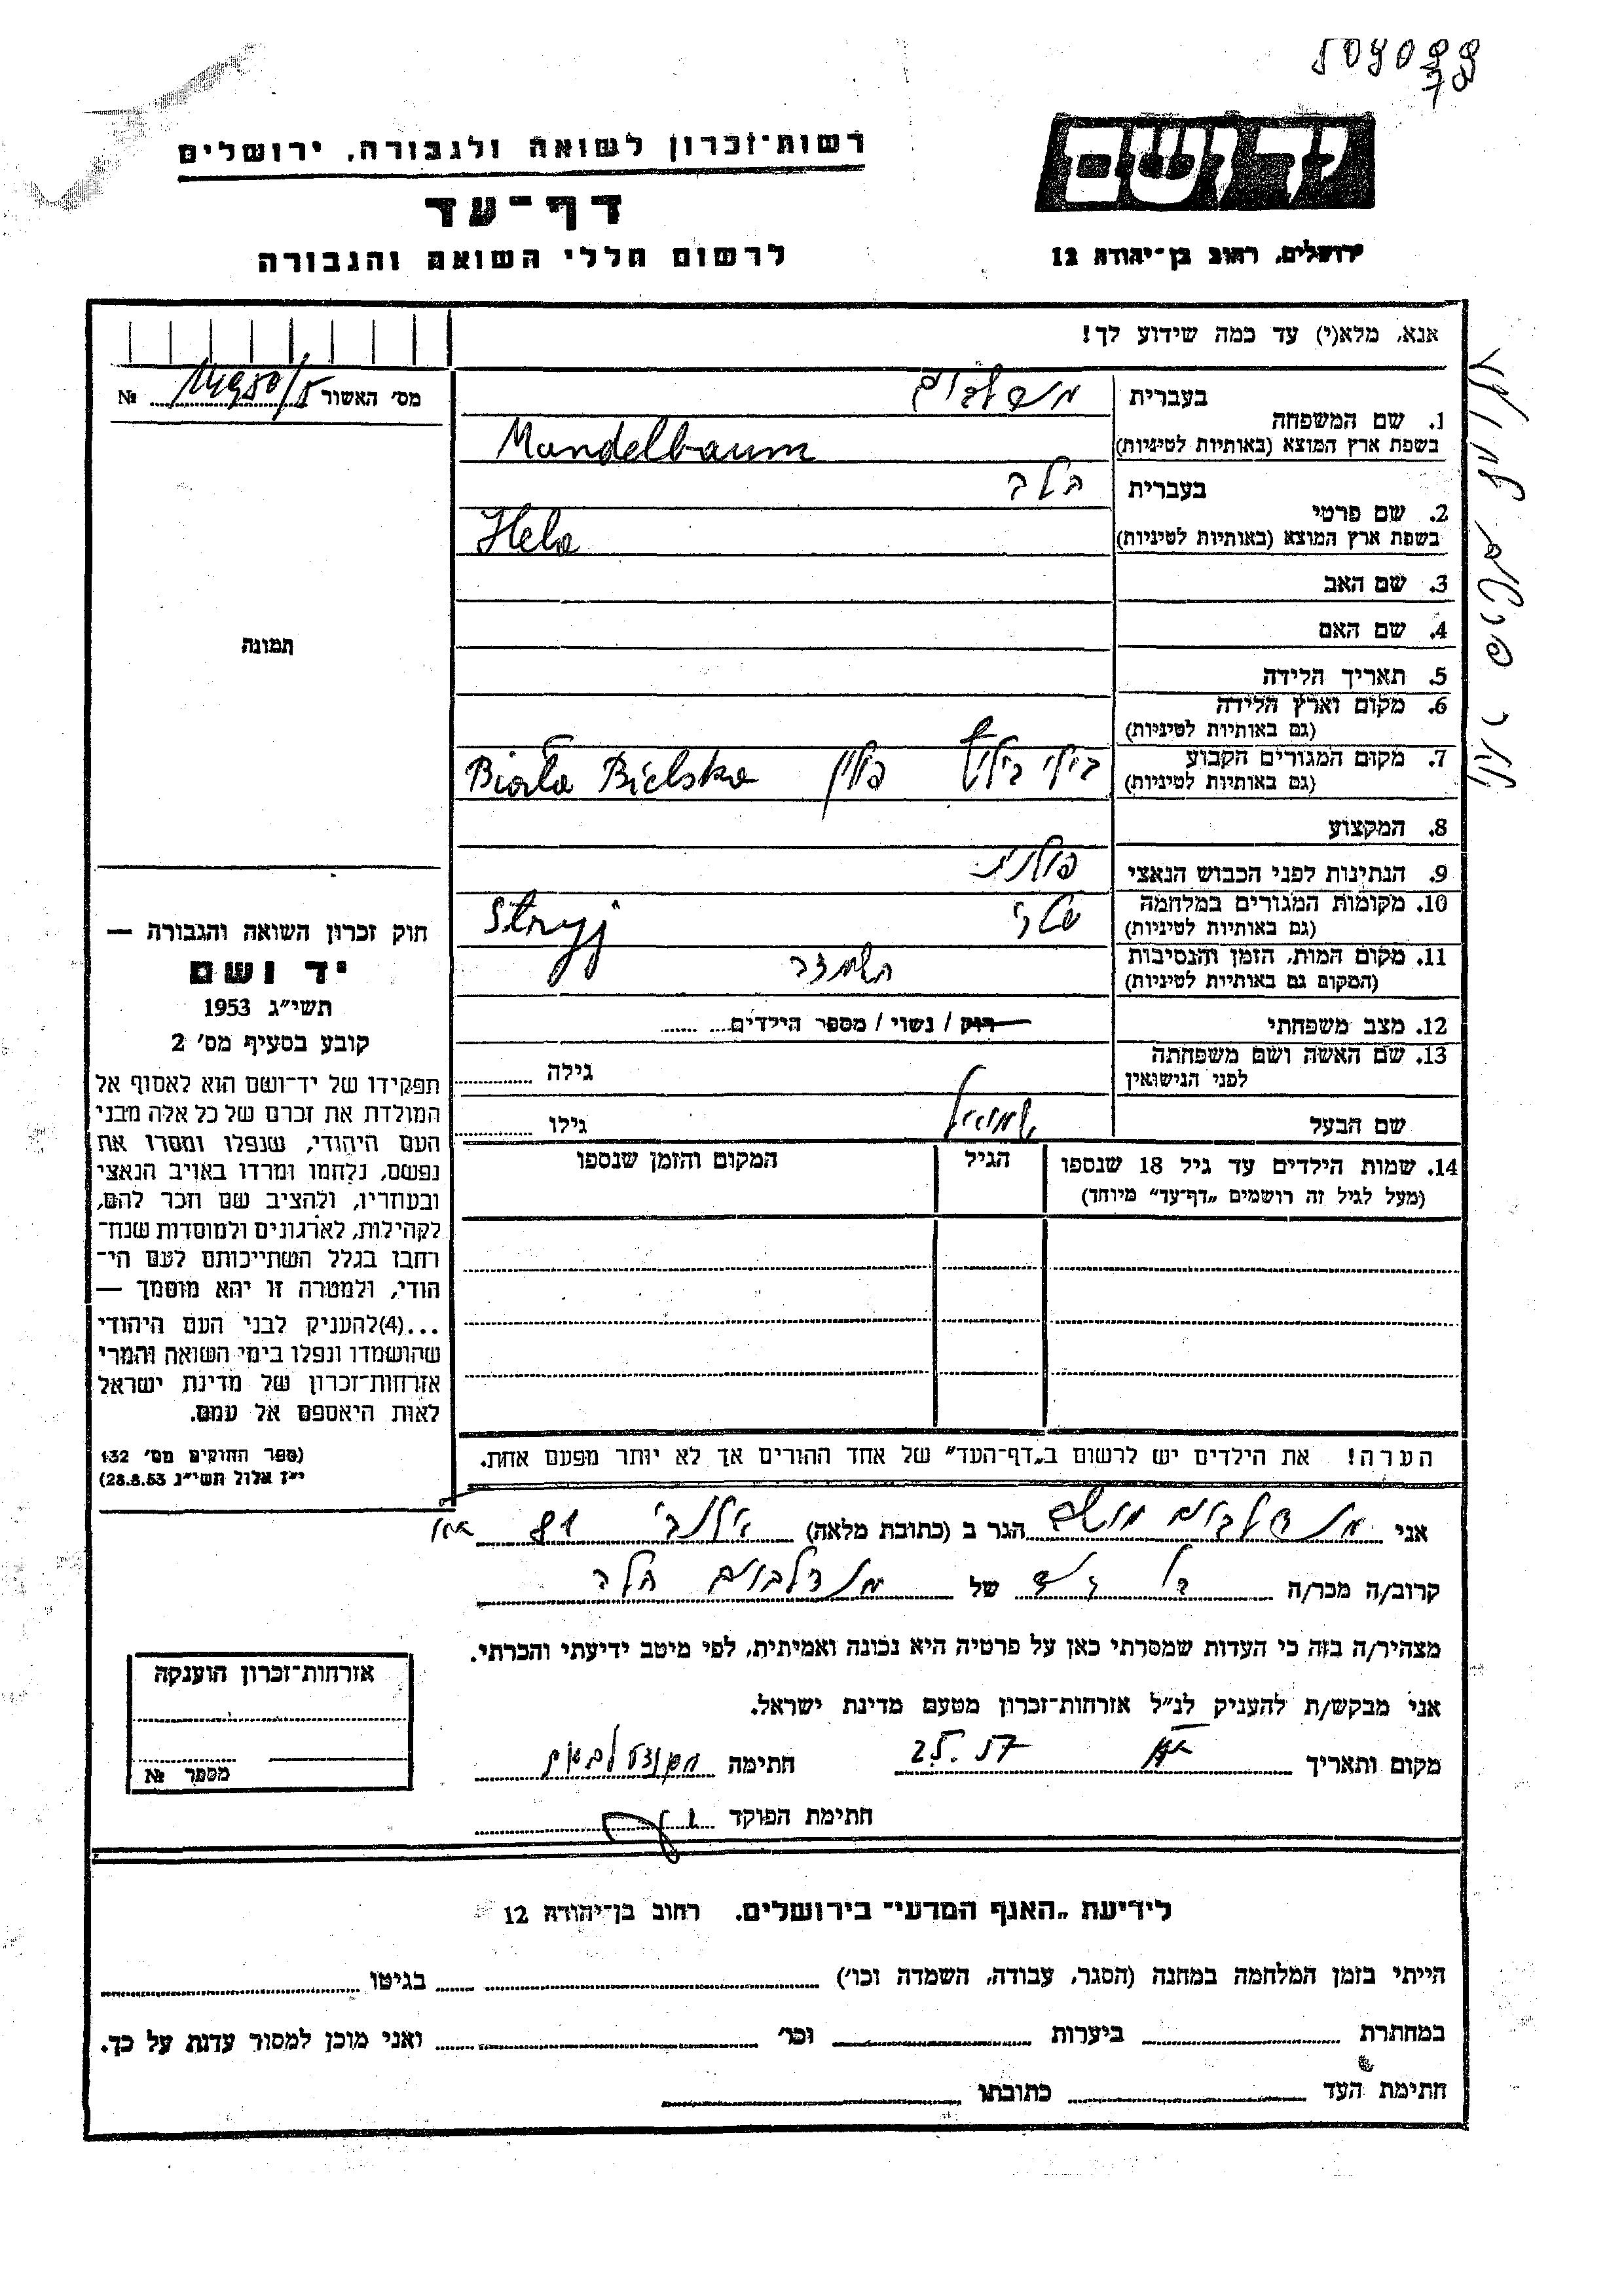 רשות־זכרון לשואה ולגבורה, ירושלים
דף־עד
לרשום חללי השואה והגבורה
יד ושם
ירושלים, רחוב בן־יהודה 12
אנא, מלא(י) עד כמה שידוע לך!
מס' האשור № 14950/5
1. שם המשפחה
בעברית מנדלבוים
בשפת ארץ המוצא (באותיות לטיניות) Mandelbaum
2. שם פרטי
בעברית הלה
בשפת ארץ המוצא (באותיות לטיניות) Hela
3. שם האב
4. שם האם
5. תאריך הלידה
6. מקום וארץ הלידה
(גם באותיות לטיניות)
7. מקום המגורים הקבוע
(גם באותיות לטיניות) פולין Biała Bielska
8. המקצוע
9. הנתינות לפני הכבוש הנאצי פולנית
10. מקומות המגורים במלחמה
(גם באותיות לטיניות) Stryj
11. מקום המות, הזמן והנסיבות
(המקום גם באותיות לטיניות) השמדה
12. מצב משפחתי רווק / נשוי / מספר הילדים
13. שם האשה ושם משפחתה
לפני הנישואין
גילה
שם הבעל שמואל
גילו
14. שמות הילדים עד גיל 18 שנספו
(מעל לגיל זה רושמים „דף־עד” מיוחד)
הגיל
המקום והזמן שנספו
הערה! את הילדים יש לרשום ב„דף־העד” של אחד ההורים אך לא יותר מפעם אחת.
תמונה
חוק זכרון השואה והגבורה —
יד ושם
תשי"ג 1953
קובע בסעיף מס' 2
תפקידו של יד־ושם הוא לאסוף אל
המולדת את זכרם של כל אלה מבני
העם היהודי, שנפלו ומסרו את
נפשם, נלחמו ומרדו באויב הנאצי
ובעוזריו, ולהציב שם וזכר להם,
לקהילות, לארגונים ולמוסדות שנח־
רבו בגלל השתייכותם לעם הי־
הודי, ולמטרה זו יהא מוסמך —
...(4)להעניק לבני העם היהודי
שהושמדו ונפלו בימי השואה והמרי
אזרחות־זכרון של מדינת ישראל
לאות היאספם אל עמם.
(ספר החוקים מס' 132
י"ז אלול תשי"ג 28.8.53)
אני מנדלבוים הגר ב (כתובת מלאה) אלנבי 81
קרוב/ה מכר/ה של מנדלבוים הלה
מצהיר/ה בזה כי העדות שמסרתי כאן על פרטיה היא נכונה ואמיתית, לפי מיטב ידיעתי והכרתי.
אני מבקש/ת להעניק לנ"ל אזרחות־זכרון מטעם מדינת ישראל.
מקום ותאריך חתימה
חתימת הפוקד
אזרחות־זכרון הוענקה
מספר №
לידיעת „האגף המדעי” בירושלים. רחוב בן־יהודה 12
הייתי בזמן המלחמה במחנה (הסגר, עבודה, השמדה וכו') בגיטו
במחתרת ביערות וכו' ואני מוכן למסור עדות על כך.
חתימת העד כתובתו